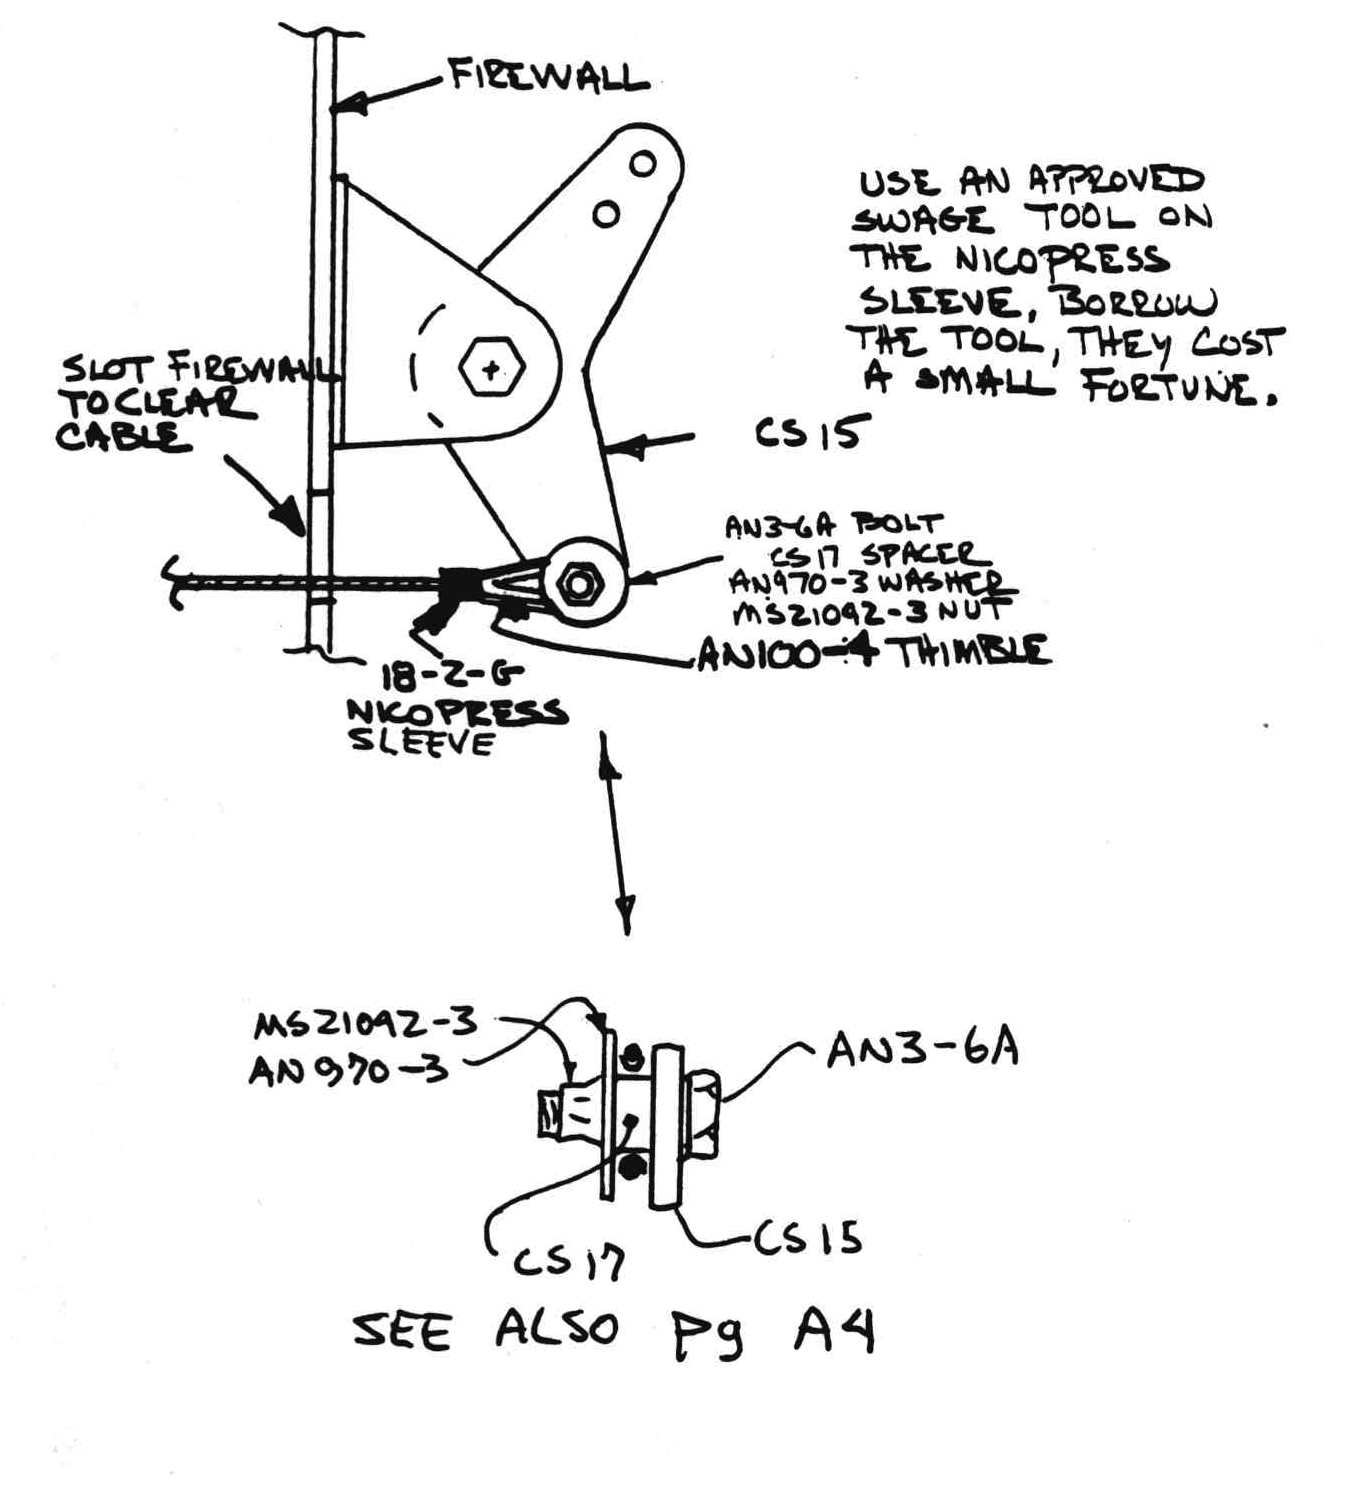 FIREWALL
USE AN APPROVED
SWAGE TOOL ON
THE NICOPRESS
SLEEVE, BORROW
THE TOOL, THEY COST
A SMALL FORTUNE.
SLOT FIREWALL
TO CLEAR
CABLE
CS 15
AN3-6A BOLT
CS 17 SPACER
AN970-3 WASHER
MS21042-3 NUT
AN100-4 THIMBLE
18-2-G
NICOPRESS
SLEEVE
MS21042-3
AN 970-3
AN3-6A
CS 15
CS 17
SEE ALSO Pg A4